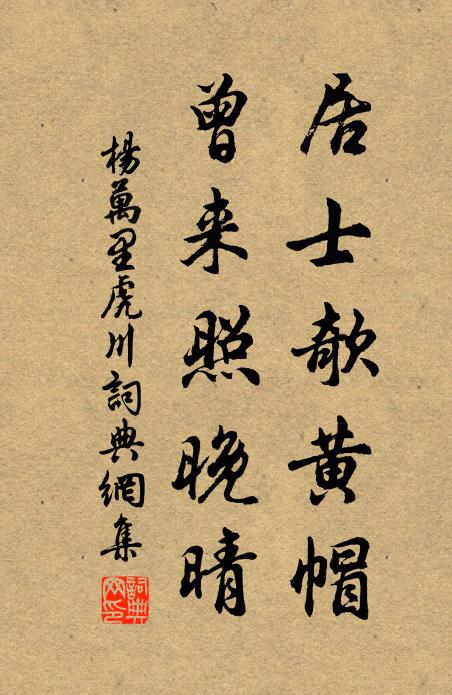 居士欹黄帽
曾来照晚晴
楊萬里虎川詞典網集
詞典
网印